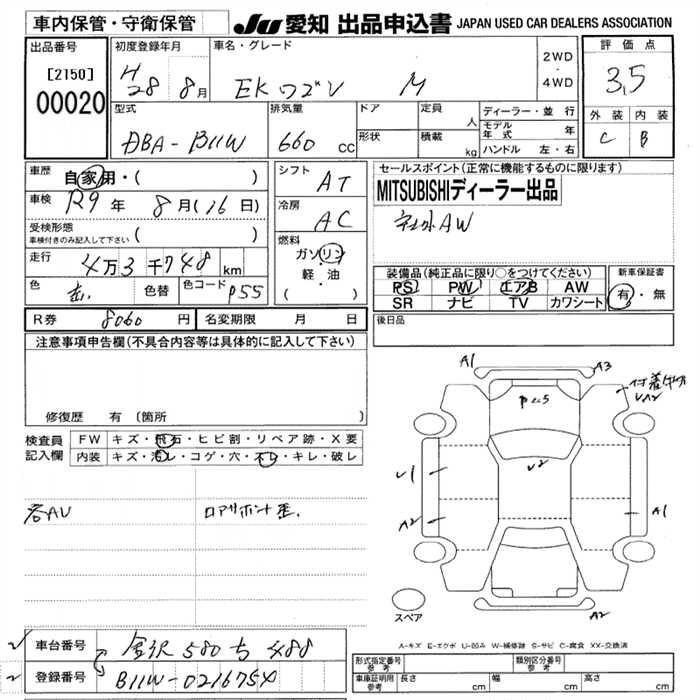 車内保管・守衛保管 JU 愛知 出品申込書 JAPAN USED CAR DEALERS ASSOCIATION
出品番号 [2150] 00020
初度登録年月 H28 8月
車名・グレード EKワゴン M
2WD・4WD
評価点 3.5
外装 C 内装 B
型式 DBA-B11W
排気量 660 CC
ドア
形状
定員 人
積載 kg
ディーラー・並行
モデル年式 年
ハンドル 左・右
車歴 自家用・( )
車検 R9年 8月(16日)
受検形態 ( )
車検付きのみ記入して下さい
走行 4万3千748 km
色 色替 色コード P55
シフト AT
冷房 AC
燃料 ガソリン・軽・油 ( )
セールスポイント(正常に機能するものに限ります)
MITSUBISHIディーラー出品
社外AW
装備品(純正品に限り○をつけてください)
PS PW エアB AW
SR ナビ TV カワシート
新車保証書 有・無
後日品
R券 8060円 名変期限 月 日
注意事項申告欄(不具合内容等は具体的に記入して下さい)
修復歴 有 (箇所
検査員記入欄
FW キズ・飛石・ヒビ割・リペア跡・X要
内装 キズ・汚レ・コゲ・穴・スレ・キレ・破レ
各AU
A1
A3
U2
U1
A2
A1
A2
スペア
A-キズ E-エクボ U-凹み W-補修跡 S-サビ C-腐食 XX-交換済
車台番号 金沢 580 ち 488
登録番号 B11W-0216754
形式指定番号 参考
類別区分番号 参考
車庫証明用 参考 長さ cm 幅 cm 高さ cm